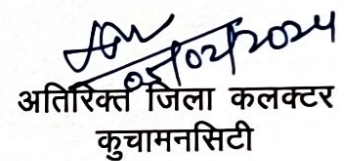 05/02/2024
अतिरिक्त जिला कलक्टर
कुचामनसिटी